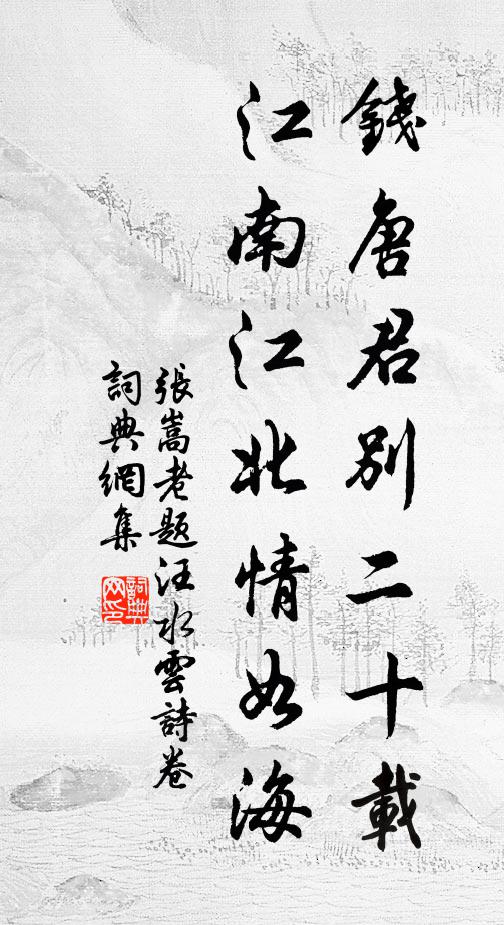 錢唐君別二十載
江南江北情如海
張嵩老題汪水雲詩卷
詞典網集